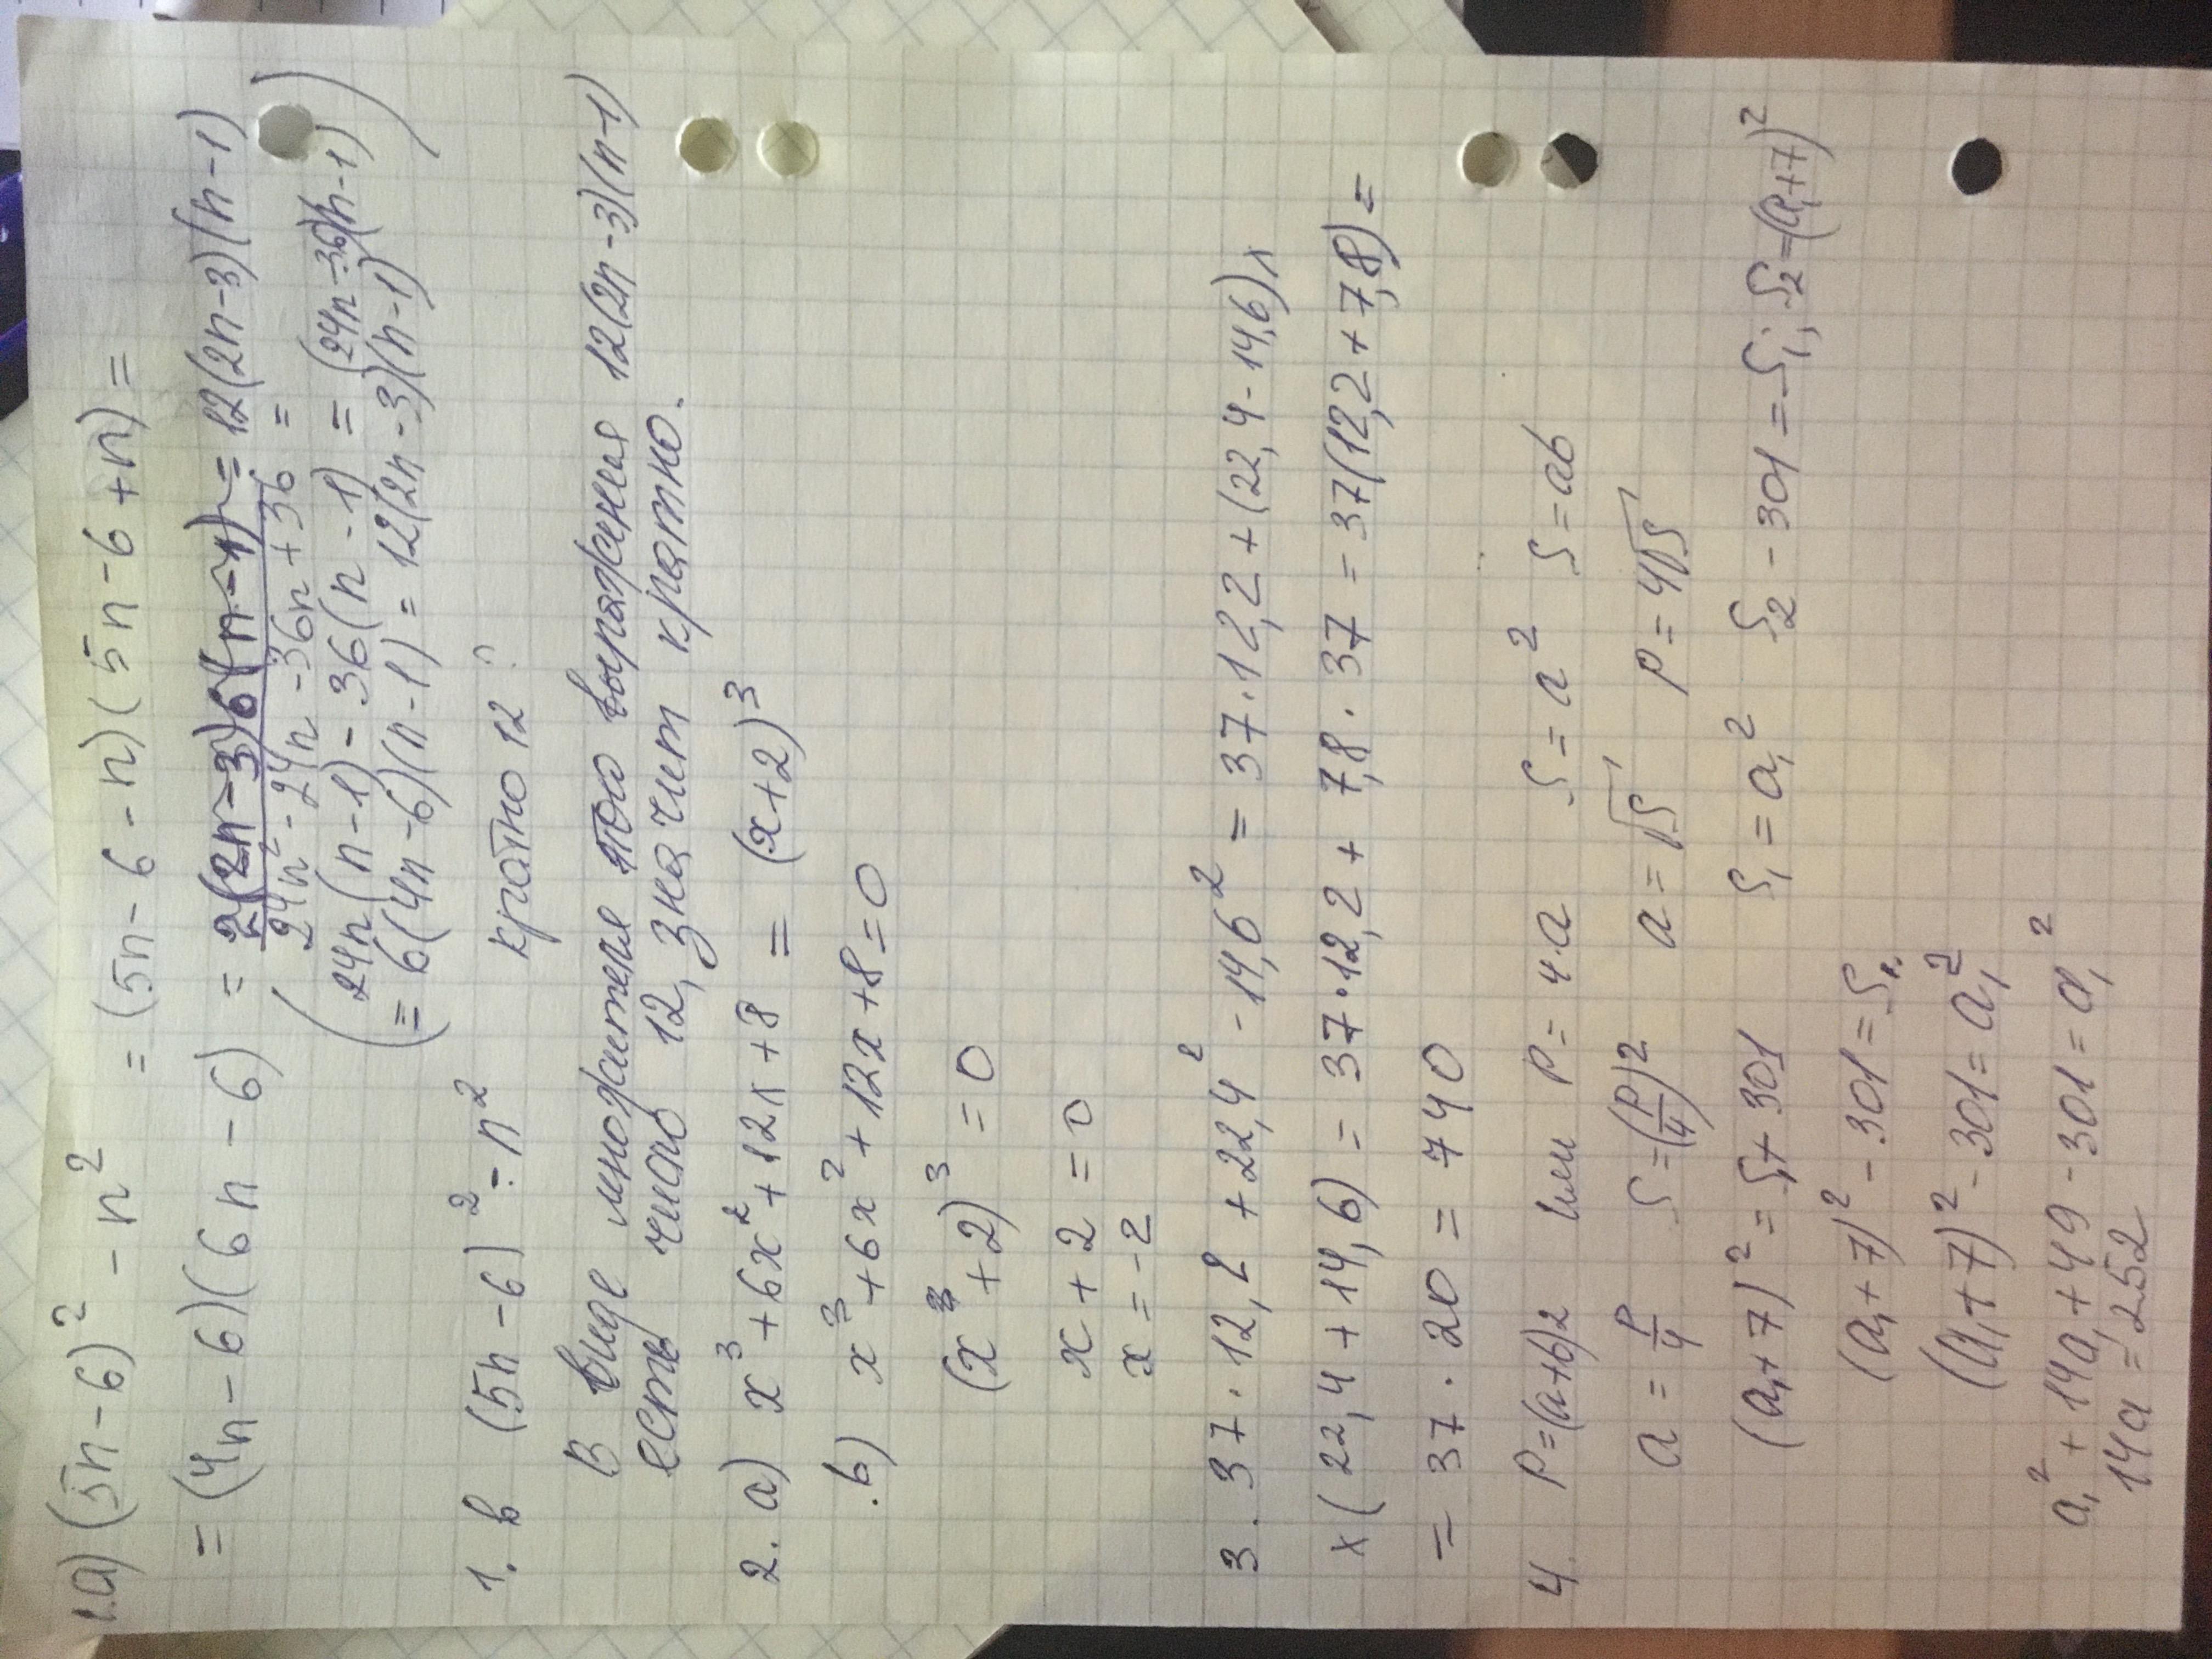 1.а) (5n-6)² - n² = (5n-6-n)(5n-6+n) =
= (4n-6)(6n-6) = 2(2n-3)6(n-1) = 12(2n-3)(n-1)
24n² - 24n - 36n + 36 =
( 24n(n-1) - 36(n-1) = (24n-36)(n-1) )
= 6(4n-6)(n-1) = 12(2n-3)(n-1)
1. в (5n-6)² - n² кратно 12?
В виде множителя этого выражения 12(2n-3)(n-1)
есть число 12, значит кратно.
2. а) x³+6x²+12x+8 = (x+2)³
в) x³+6x²+12x+8=0
(x+2)³ = 0
x+2 = 0
x = -2
3. 37·12,2 + 22,4² - 14,6² = 37·12,2 + (22,4-14,6)x
x(22,4+14,6) = 37·12,2 + 7,8·37 = 37(12,2+7,8) =
= 37·20 = 740
4. P=(a+b)2 или P=4·a S=a² S=ab
a = P/4 S=(P/4)² a=√S P=4√S
(a₁+7)² = S₁+301 S₁=a₁² S₂-301=S₁; S₂=(a₁+7)²
(a₁+7)² - 301 = S₁.
(a₁+7)² - 301 = a₁²
a₁²+14a₁+49-301=a₁²
14a = 252